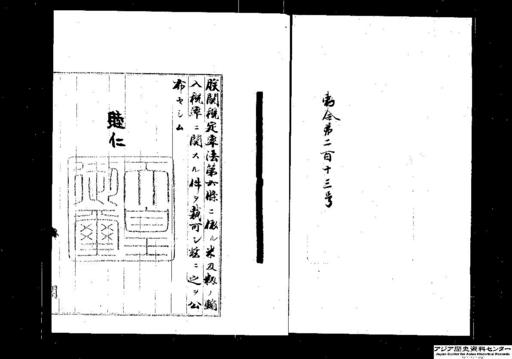 勅令第二百十三号
朕関税定率法第六條ニ依ル米及籾ノ輸
入税率ニ関スル件ヲ裁可シ茲ニ之ヲ公
布セシム
睦仁
天皇
御璽
アジア歴史資料センター
Japan Center for Asian Historical Records